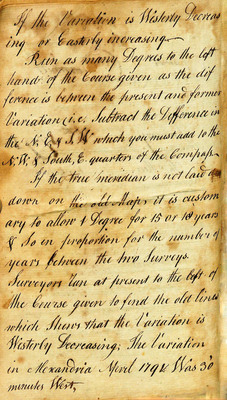 If the Variation is Westerly Decreas
ing or Easterly increasing
Run as many Degrees to the left
hand of the Course given as the dif
ference is between the present and former
Variation i.e. Subtract the Difference in
the N. E & S. W which you must add to the
N. W. & South, E. quarter of the Compass
If the true meridian is not laid
down on the old Map, it is custom
ary to allow 1 Degree for 15 or 18 years
& So in proportion for the number of
years between the two Surveys.
Surveyors run at present to the left of
the Course given to find the old lines
which Shews that the Variation is
Westerly Decreasing; The Variation
in Alexandria April 1794 Was 30
minutes West,